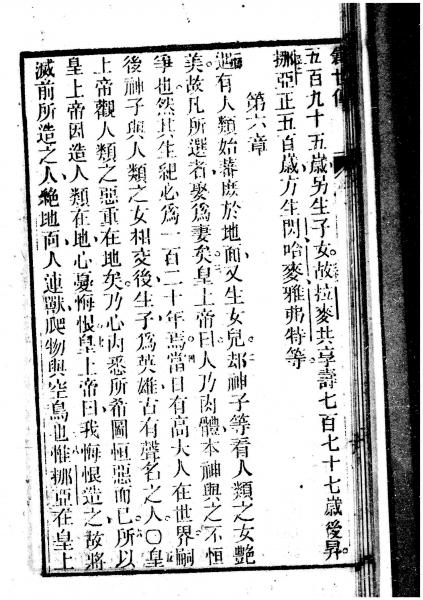 五百九十五歲另生子女故拉麥共享壽七百七十七歲後昇
挪亞正五百歲方生閃哈麥雅弗特等
第六章
有人類始蕃庶於地面又生女兒却神子等看人類之女艷
美故凡所選者娶為妻矣皇上帝曰人乃肉體本神與之不恒
爭也然其生紀必為一百二十年焉當日有高大人在世界嗣
後神子與人類之女相交後生子為英雄古有聲名之人〇皇
上帝觀人類之惡重在地矣乃心內悉所希圖恒惡而已所以
皇上帝因造人類在地心憂悔恨皇上帝曰我悔恨造之故將
滅前所造之人絕地面人連獸爬物與空鳥也惟挪亞在皇上